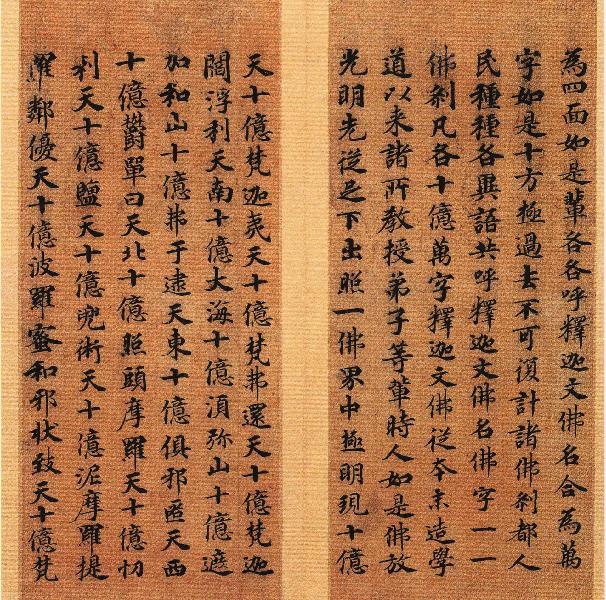 為四面如是輩各各呼釋迦文佛名合為萬
字如是十方極過去不可復計諸佛剎都人
民種種各異語共呼釋迦文佛名佛字一一
佛剎凡各十億萬字釋迦文佛從本未造學
道以来諸所教授弟子等輩時人如是佛放
光明先從足下出照一佛界中極明現十億
天十億梵迦夷天十億梵弗還天十億梵迦
閻浮利天南十億大海十億湏弥山十億遮
加和山十億弗于逮天東十億俱耶匝天西
十億欝單曰天北十億照頭摩羅天十億忉
利天十億鹽天十億兜術天十億泥摩羅提
羅鄰優天十億波羅蜜和邪拔致天十億梵